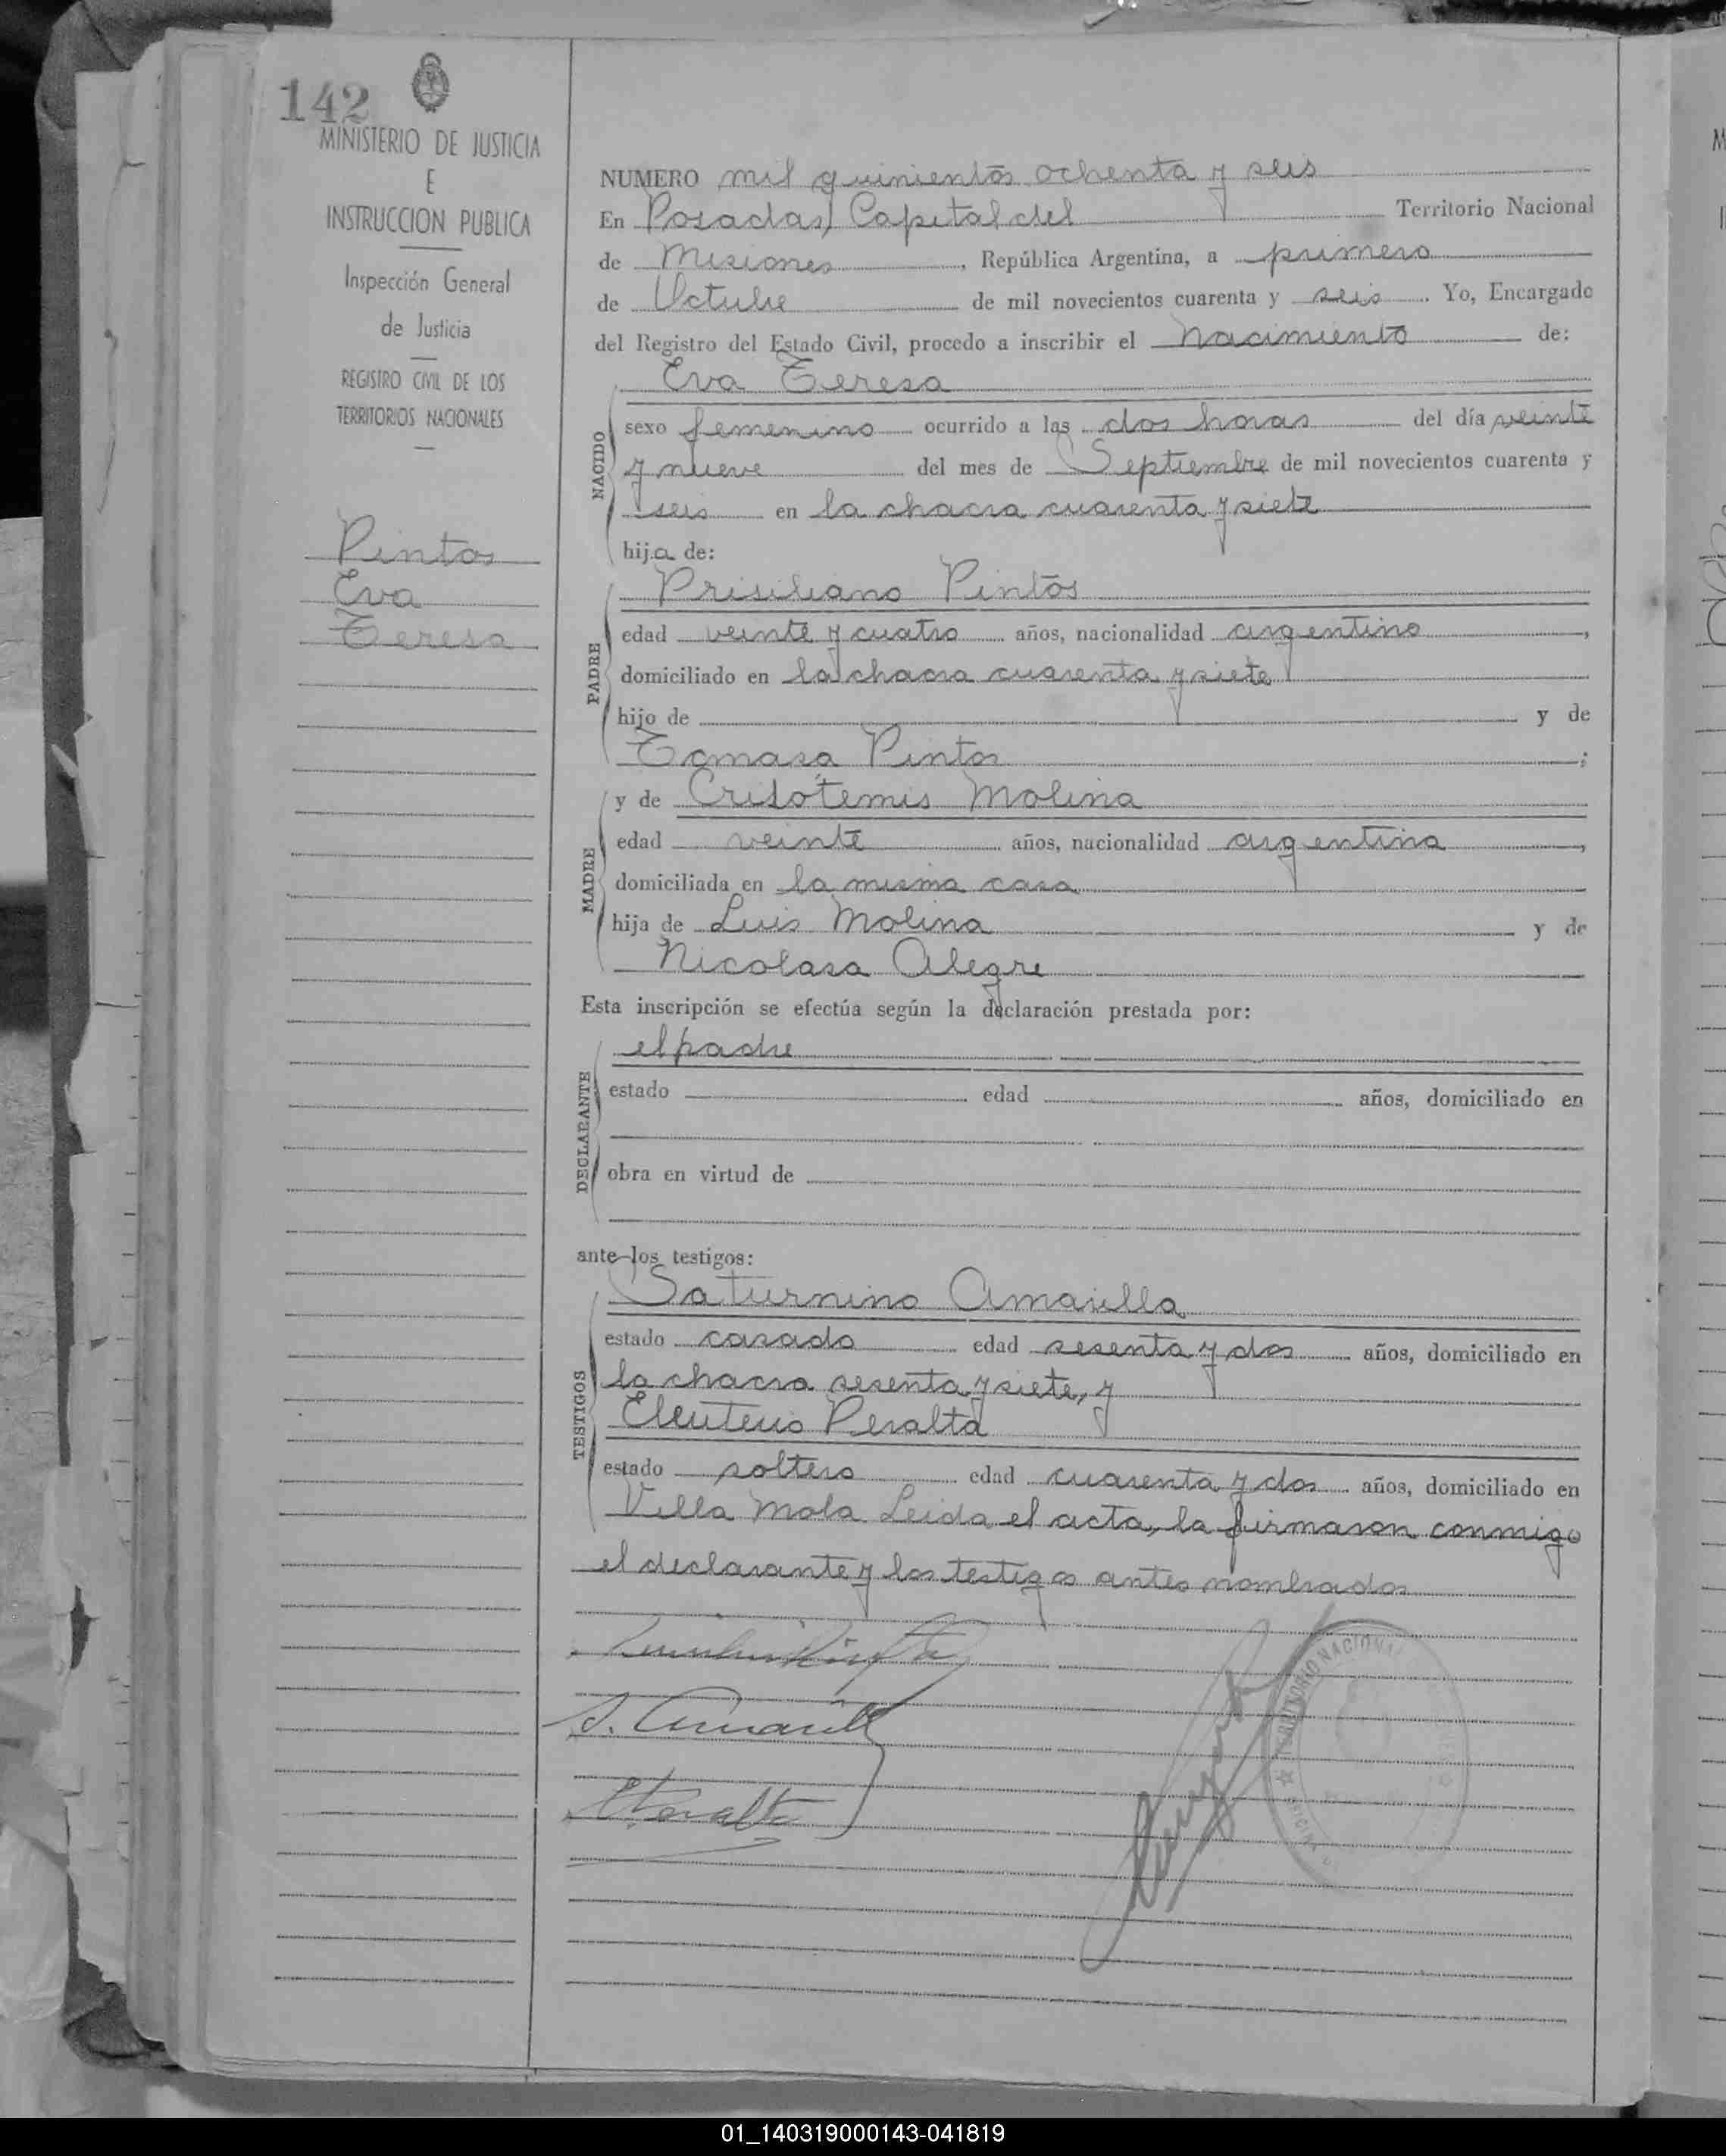 142
MINISTERIO DE JUSTICIA
E
INSTRUCCION PUBLICA
Inspección General
de Justicia
REGISTRO CIVIL DE LOS
TERRITORIOS NACIONALES
Pintos
Eva
Teresa
NUMERO mil quinientos ochenta y seis
En Posadas, Capital del Territorio Nacional
de Misiones, República Argentina, a primero
de Octubre de mil novecientos cuarenta y seis. Yo, Encargado
del Registro del Estado Civil, procedo a inscribir el Nacimiento de:
NACIDO
Eva Teresa
sexo femenino ocurrido a las dos horas del día veinte
y nueve del mes de Septiembre de mil novecientos cuarenta y
seis en la chacra cuarenta y siete
hija de:
PADRE
Prisiliano Pintos
edad veinte y cuatro años, nacionalidad argentino,
domiciliado en la chacra cuarenta y siete
hijo de y de
Tomasa Pintos;
MADRE
y de Crisótemis Molina
edad veinte años, nacionalidad argentina,
domiciliada en la misma casa
hija de Luis Molina y de
Nicolasa Alegre
Esta inscripción se efectúa según la declaración prestada por:
DECLARANTE
el padre
estado edad años, domiciliado en
obra en virtud de
ante los testigos:
TESTIGOS
Saturnino Amarilla
estado casado edad sesenta y dos años, domiciliado en
la chacra sesenta y siete, y
Eleuterio Peralta
estado soltero edad cuarenta y dos años, domiciliado en
Villa Mola Leida el acta, la firmaron conmigo
el declarante y los testigos antes nombrados
S. Amarilla
E. Peralta
TERRITORIO NACIONAL
01_140319000143-041819